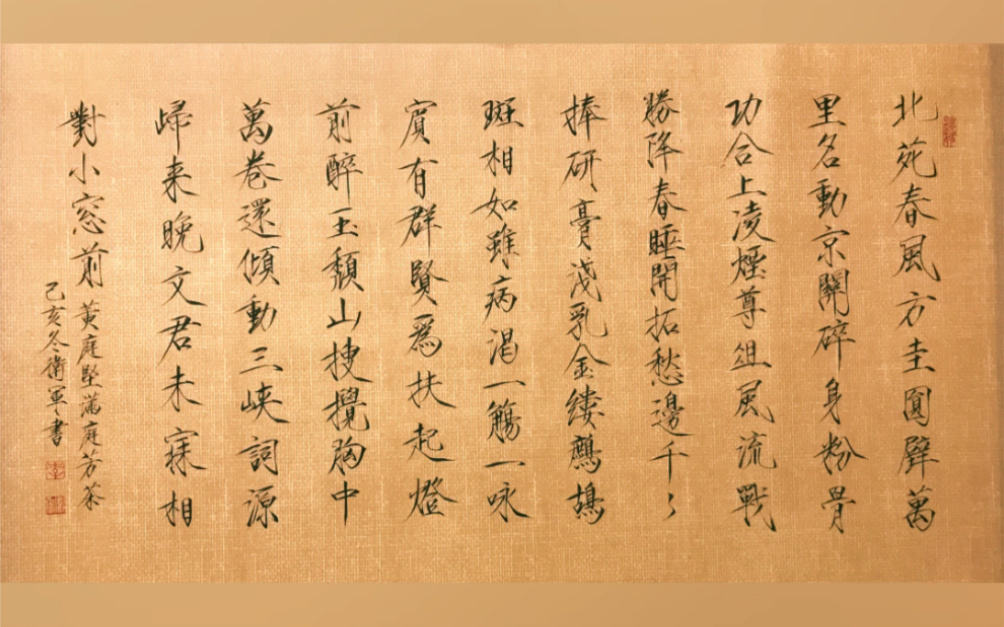 北苑春風方圭圓璧萬
里名動京關碎身粉骨
功合上凌煙尊俎風流戰
勝降春睡開拓愁邊千〻
捧研膏淺乳金縷鷓鴣
斑相如雖病渴一觴一咏
賓有群賢為扶起燈
前醉玉頹山搜攪胸中
萬卷還傾動三峽詞源
歸来晚文君未寐相
對小窓前
黃庭堅滿庭芳茶
己亥冬衛軍書